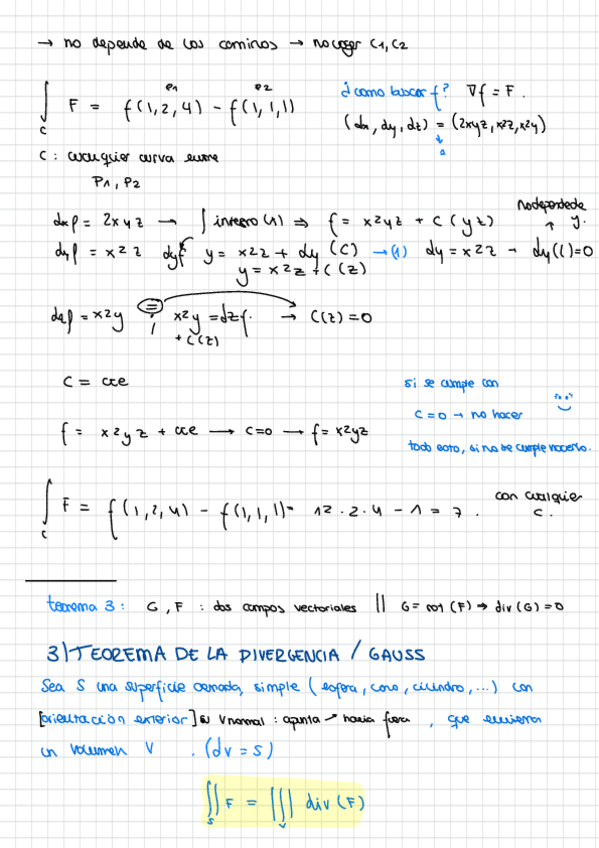 → no depende de los caminos → no coger C1, C2
P1 P2
∫ F = f(1,2,4) - f(1,1,1) ¿como buscar f? ∇f = F.
C (dx, dy, dz) = (2xyz, x2z, x2y)
C: cualquier curva entre
P1, P2
no depende de y.
dxf = 2xyz → ∫ integro (1) ⇒ f = x2yz + C(yz)
dyf = x2z dyf y = x2z + dy (C) → (1) dy = x2z → dy(C)=0
y = x2z + C(z)
dzf = x2y = x2y = dzf. → C(z) = 0
+ C(z)
C = cte si se cumple con
C=0 → no hacer
f = x2yz + cte → C=0 → f = x2yz todo esto, si no se cumple hacerlo.
∫ F = f(1,2,4) - f(1,1,1) = 12·2·4 - 1 = 7. con cualquier
C C.
teorema 3: G, F : dos campos vectoriales || G = rot(F) → div(G) = 0
3) TEOREMA DE LA DIVERGENCIA / GAUSS
Sea S una superficie cerrada, simple (esfera, cono, cilindro, ...) con
[orientación exterior] su vnormal: apunta → hacia fuera, que encierra
un volumen V. (dv = S)
∬ F = ∭ div(F)
S V